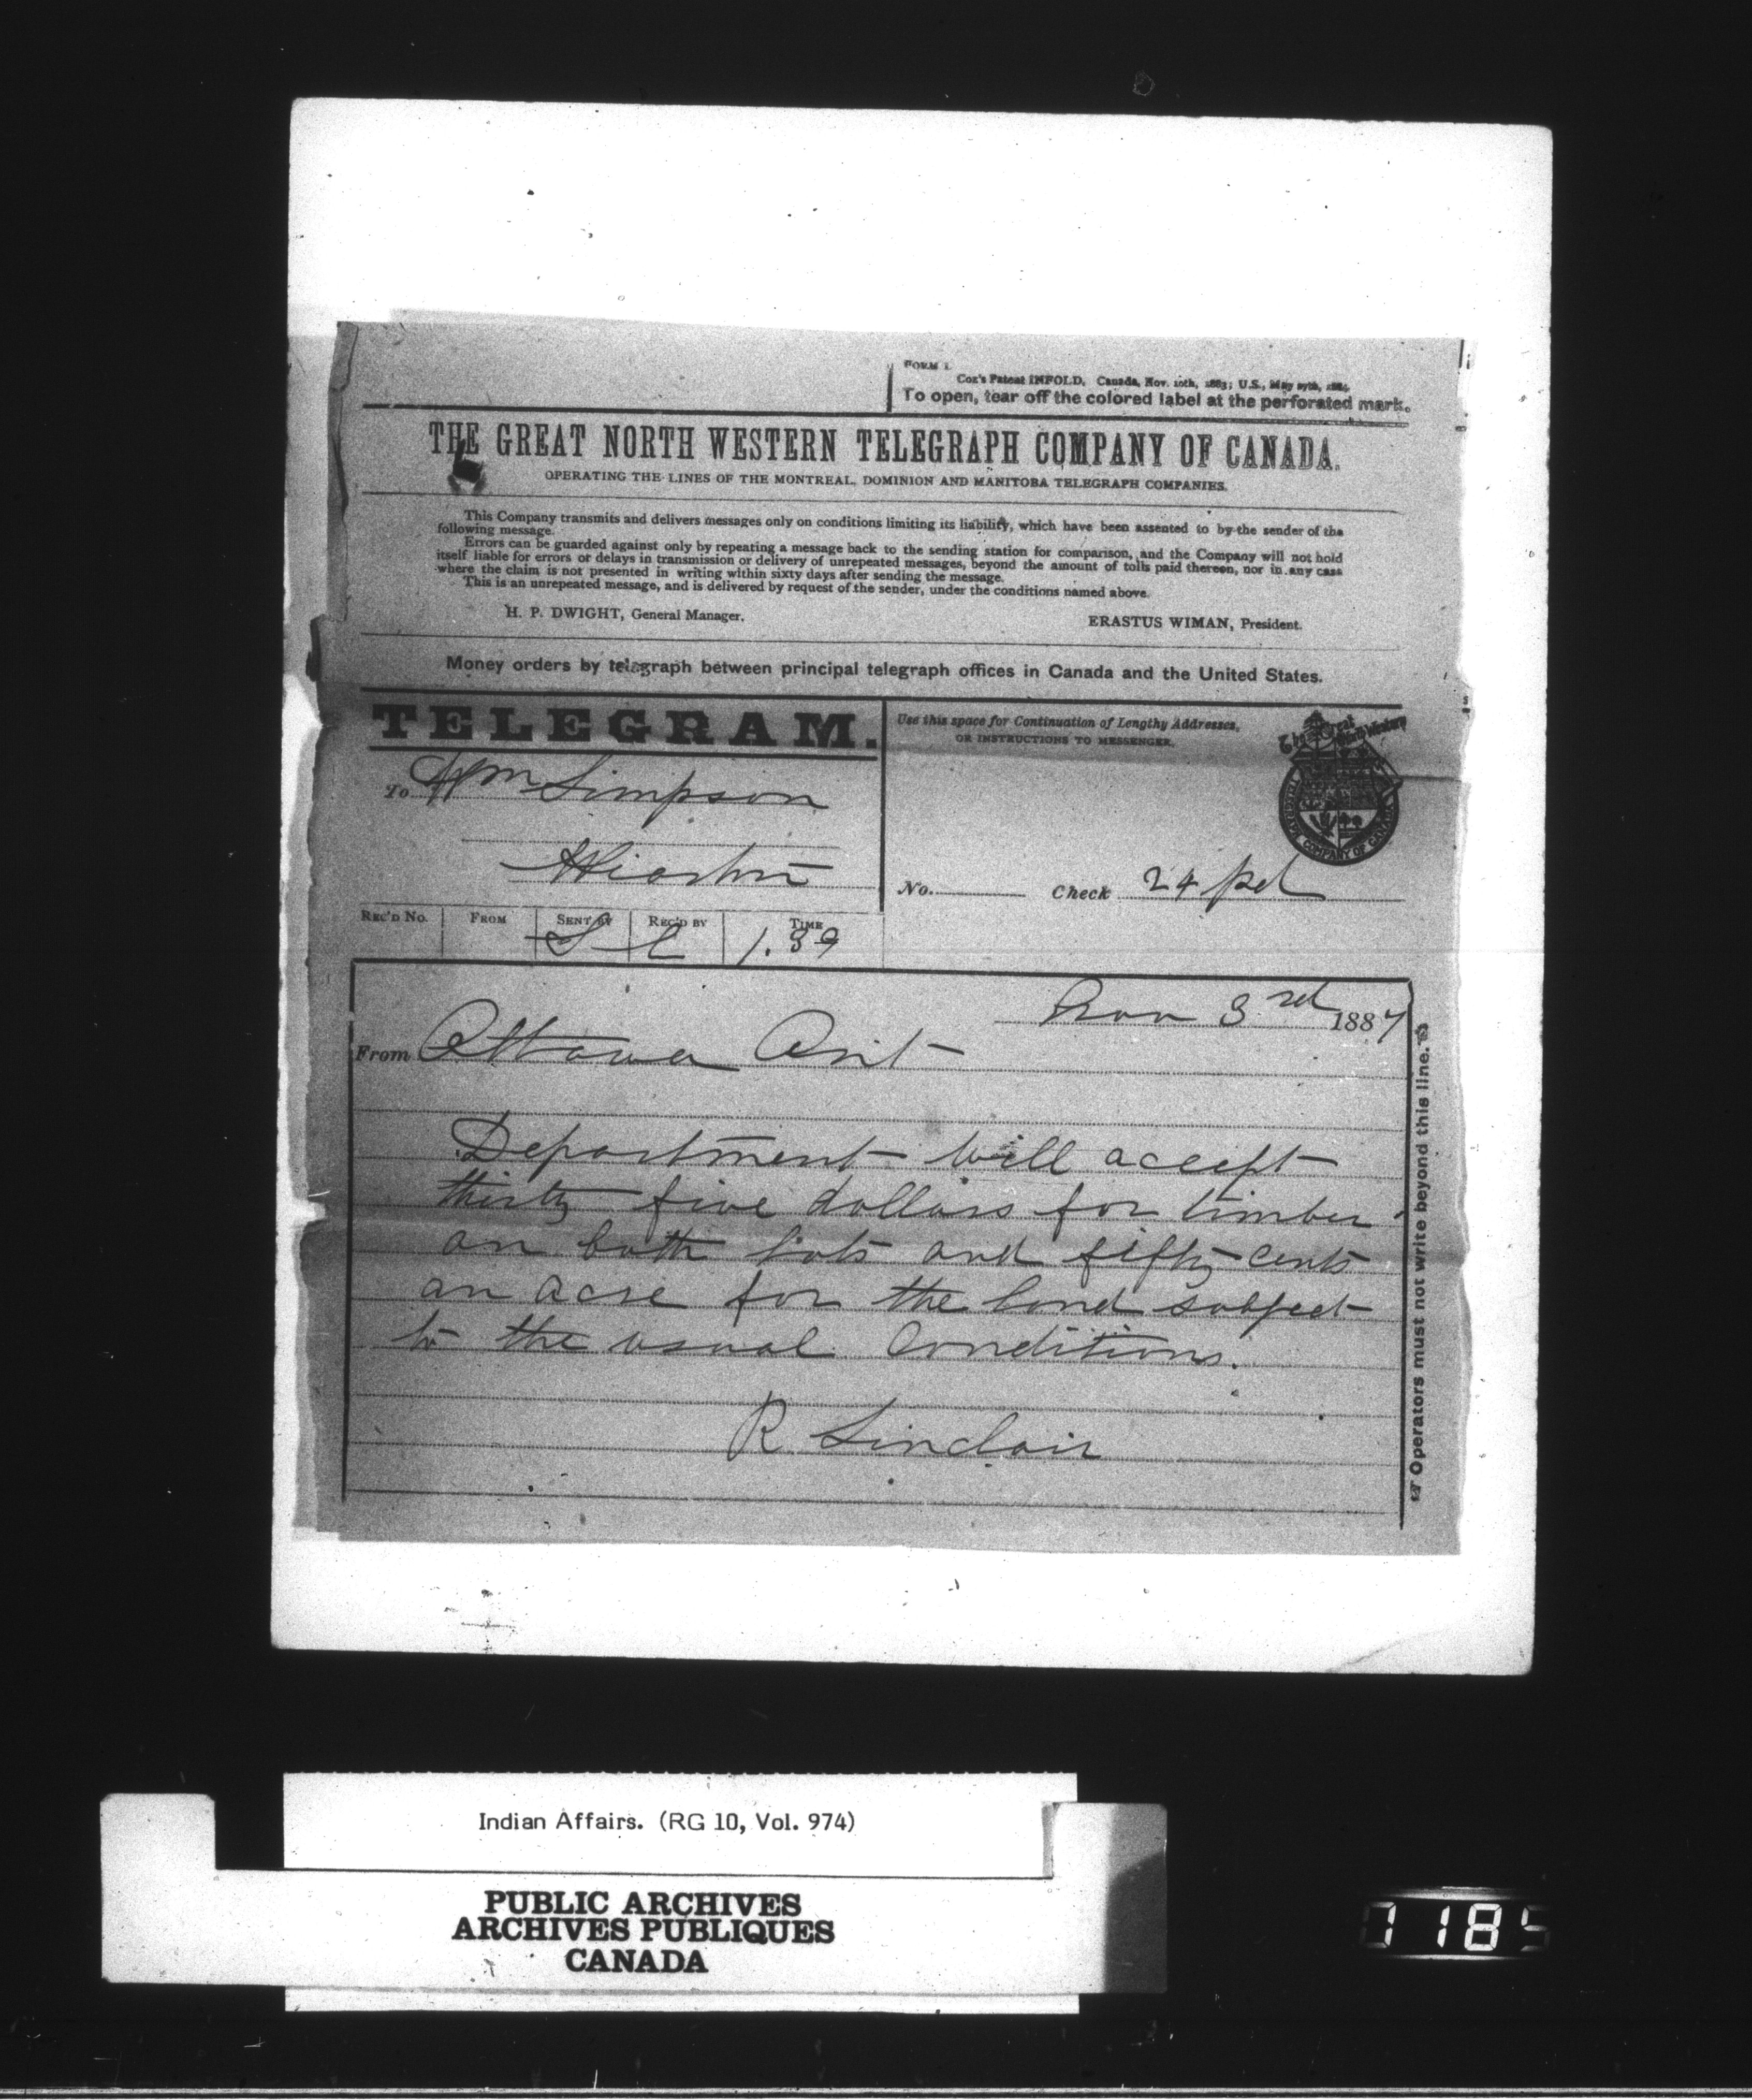 FORM 1.
Cox's Patent INFOLD, Canada, Nov. 10th, 1883; U.S., May
To open, tear off the colored label at the perforated mark.
THE GREAT NORTH WESTERN TELEGRAPH COMPANY OF CANADA.
OPERATING THE LINES OF THE MONTREAL, DOMINION AND MANITOBA TELEGRAPH COMPANIES.
This Company transmits and delivers messages only on conditions limiting its liability, which have been assented to by the sender of the
following message.
Errors can be guarded against only by repeating a message back to the sending station for comparison, and the Company will not hold
itself liable for errors or delays in transmission or delivery of unrepeated messages, beyond the amount of tolls paid thereon, nor in any case
where the claim is not presented in writing within sixty days after sending the message.
This is an unrepeated message, and is delivered by request of the sender, under the conditions named above.
H. P. DWIGHT, General Manager.
ERASTUS WIMAN, President.
Money orders by telegraph between principal telegraph offices in Canada and the United States.
TELEGRAM.
Use this space for Continuation of Lengthy Addresses,
OR INSTRUCTIONS TO MESSENGER.
The Great
North Western
TELEGRAPH COMPANY OF CANADA
To Wm Simpson
Wiarton
No. Check 24 pd
REC'D No. FROM SENT BY REC'D BY TIME
S L 1.39
Nov 3rd 1887
From Ottawa Ont
Department will accept
thirty five dollars for timber
on both lots and fifty cents
an acre for the land subject
to the usual conditions.
R Sinclair
Operators must not write beyond this line.
Indian Affairs. (RG 10, Vol. 974)
PUBLIC ARCHIVES
ARCHIVES PUBLIQUES
CANADA
1185